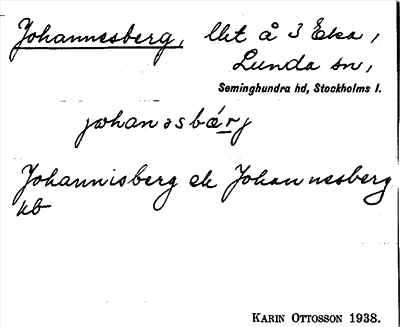 Johannesberg, lht å 3 Eka,
Lunda sn,
Seminghundra hd, Stockholms l.
johanəsbærj
Johannisberg ek Johannesberg
kb
KARIN OTTOSSON 1938.